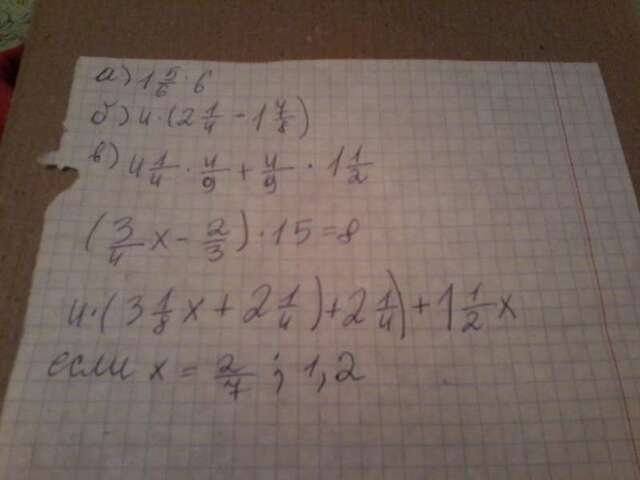 а) 1 5/6 · 6
б) 4 · (2 1/4 - 1 1/8)
в) 4 1/4 · 4/9 + 4/9 · 1 1/2
(3/4 x - 2/3) · 15 = 8
4 · (3 1/8 x + 2 1/4) + 2 1/4) + 1 1/2 x
если x = 2/7 ; 1,2